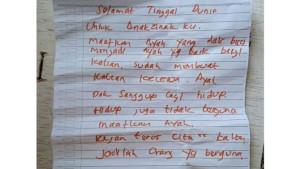 Selamat Tinggal Dunia
Untuk Anak2nak ku.
Maafkan Ayah yang dak bisa
menjadi Ayah yg baik bagi
kalian, sudah membuat
kalian kecewa Ayah
Dak Sanggup lagi hidup
Hidup juga tidak berguna
maafkan Ayah.
Kejar terus Cita"
Jadilah Orang yg berguna